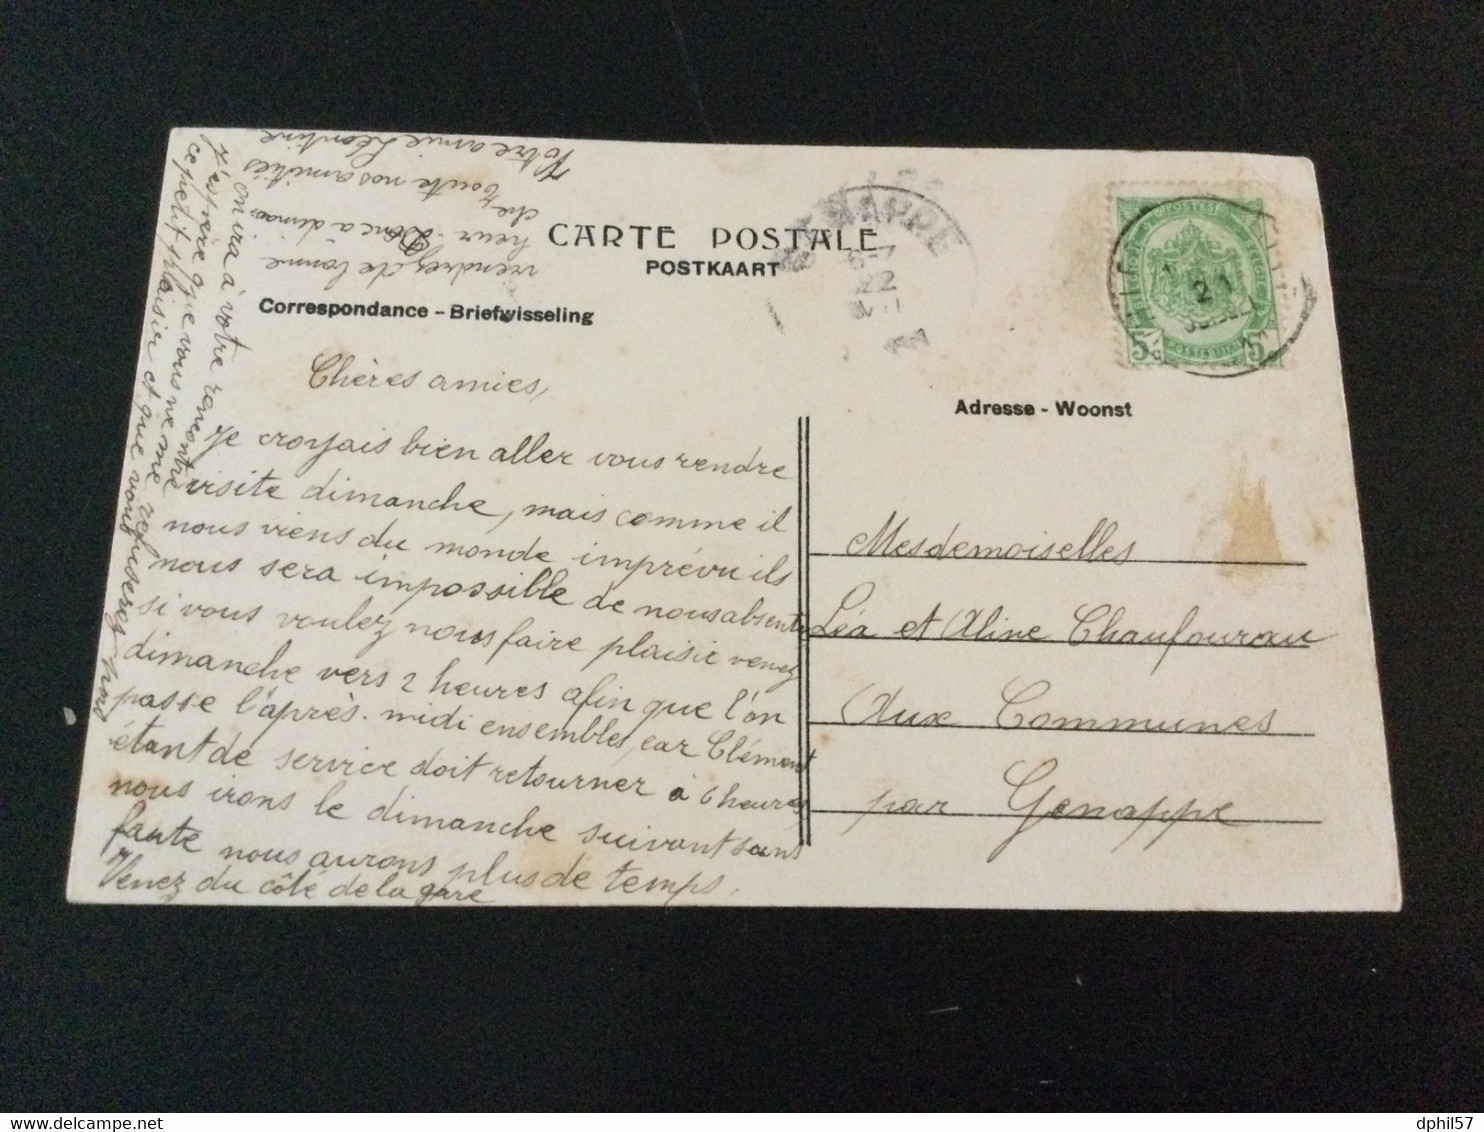 CARTE POSTALE
POSTKAART
Correspondance - Briefwisseling
Adresse - Woonst
Chères amies,
Je croyais bien aller vous rendre
visite dimanche, mais comme il
nous viens du monde imprévu ils
nous sera impossible de nous absenter
si vous voulez nous faire plaisir venez
dimanche vers 2 heures afin que l'on
passe l'après-midi ensembles, car Clément
étant de service doit retourner à 6 heures
nous irons le dimanche suivant sans
faute nous aurons plus de temps.
Venez du côté de la gare
on ira à votre rencontre
J'espère que vous ne me refuserez pas
ce petit plaisir et que vous
viendrez de bonne
heur - Donc à diman
che toute nos amitiés
Votre amie Léontine
Mesdemoiselles
Léa et Aline Chaufoureau
Aux Communes
par Genappe
GENAPPE
22
21
5c
5c
dphil57